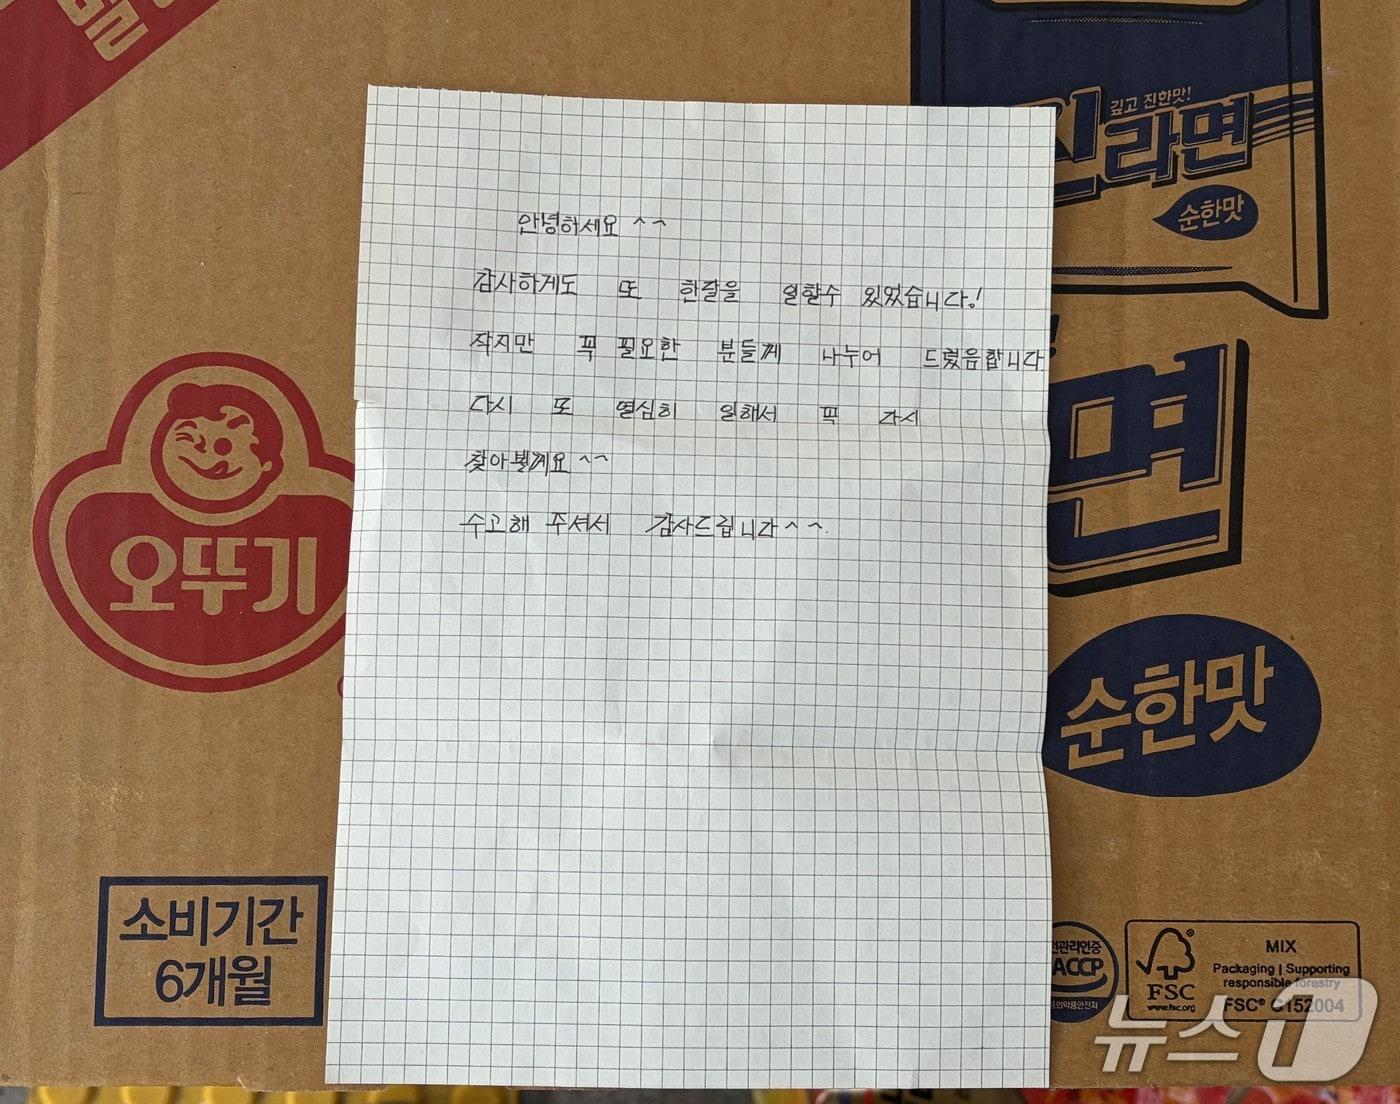 깊고 진한맛!
라면
순한맛
안녕하세요 ^^
감사하게도 또 한달을 일할수 있었습니다!
작지만 꼭 필요한 분들께 나누어 드렸음합니다.
다시 또 열심히 일해서 꼭 다시
찾아뵐게요 ^^
수고해 주셔서 감사드립니다^^.
오뚜기
면
순한맛
소비기간
6개월
전관리인증
ACCP
FSC
www.fsc.org
MIX
Packaging | Supporting
responsible forestry
FSC® C152004
뉴스1